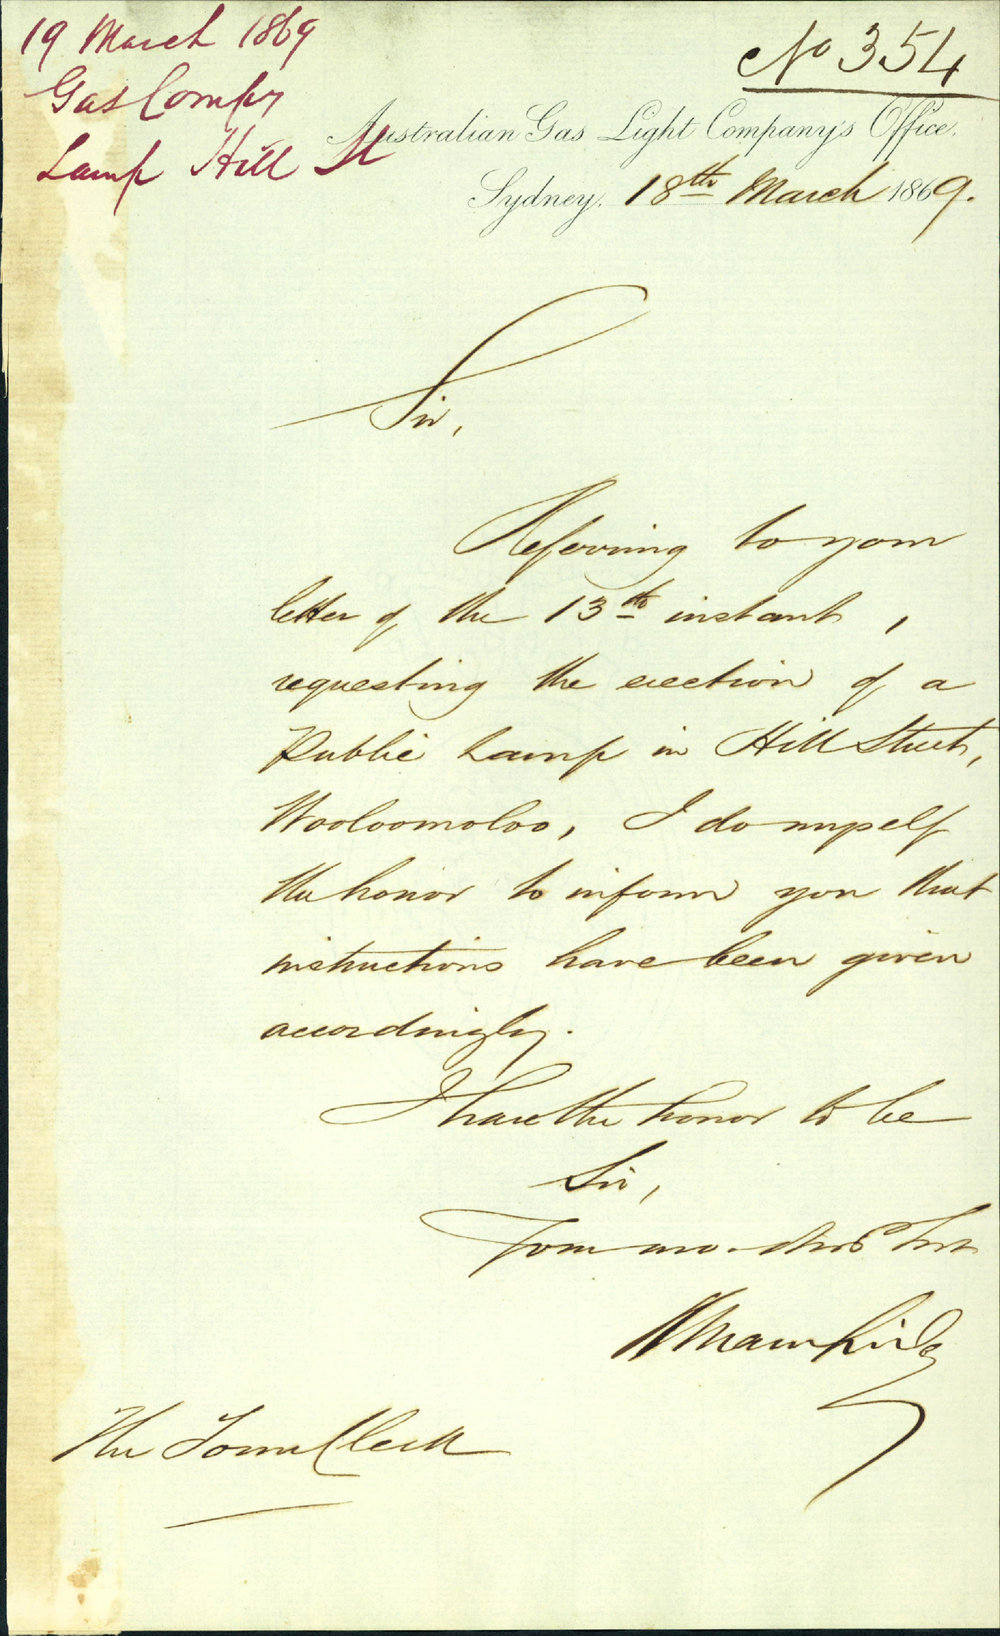 19 March 1869
Gas Compy
Lamp Hill St
No 354
Australian Gas Light Company's Office,
Sydney, 18th March 1869.
Sir,
Referring to your
letter of the 13th instant,
requesting the erection of a
Public Lamp in Hill Street,
Wooloomoloo, I do myself
the honor to inform you that
instructions have been given
accordingly.
I have the honor to be
Sir,
Your mo. obdt Servt
The Town Clerk